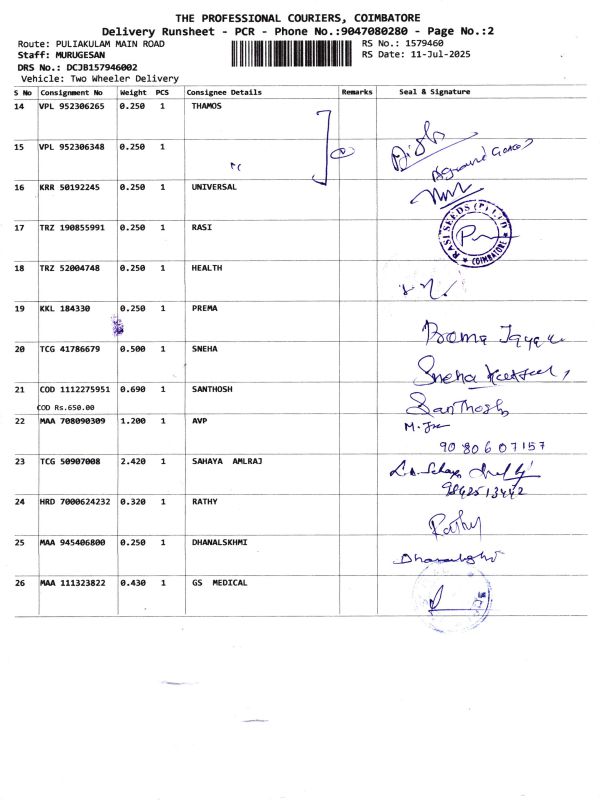 THE PROFESSIONAL COURIERS, COIMBATORE
Delivery Runsheet - PCR - Phone No.:9047080280 - Page No.:2
Route: PULIAKULAM MAIN ROAD RS No.: 1579460
Staff: MURUGESAN RS Date: 11-Jul-2025
DRS No.: DCJB157946002
Vehicle: Two Wheeler Delivery
S No Consignment No Weight PCS Consignee Details Remarks Seal & Signature
14 VPL 952306265 0.250 1 THAMOS
15 VPL 952306348 0.250 1
16 KRR 50192245 0.250 1 UNIVERSAL
17 TRZ 190855991 0.250 1 RASI RASI SEEDS (P) LTD COIMBATORE
18 TRZ 52004748 0.250 1 HEALTH
19 KKL 184330 0.250 1 PREMA
20 TCG 41786679 0.500 1 SNEHA Sneha
21 COD 1112275951 0.690 1 SANTHOSH Santhosh
COD Rs.650.00
22 MAA 708090309 1.200 1 AVP 9080607157
23 TCG 50907008 2.420 1 SAHAYA AMLRAJ 9842513442
24 HRD 7000624232 0.320 1 RATHY Rathy
25 MAA 945406800 0.250 1 DHANALSKHMI
26 MAA 111323822 0.430 1 GS MEDICAL